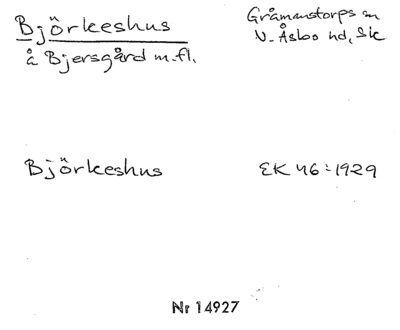 Björkeshus
å Bjersgård m.fl.
Gråmanstorps sn
N. Åsbo hd, Sk
Björkeshus
EK 46:1929
Nr 14927